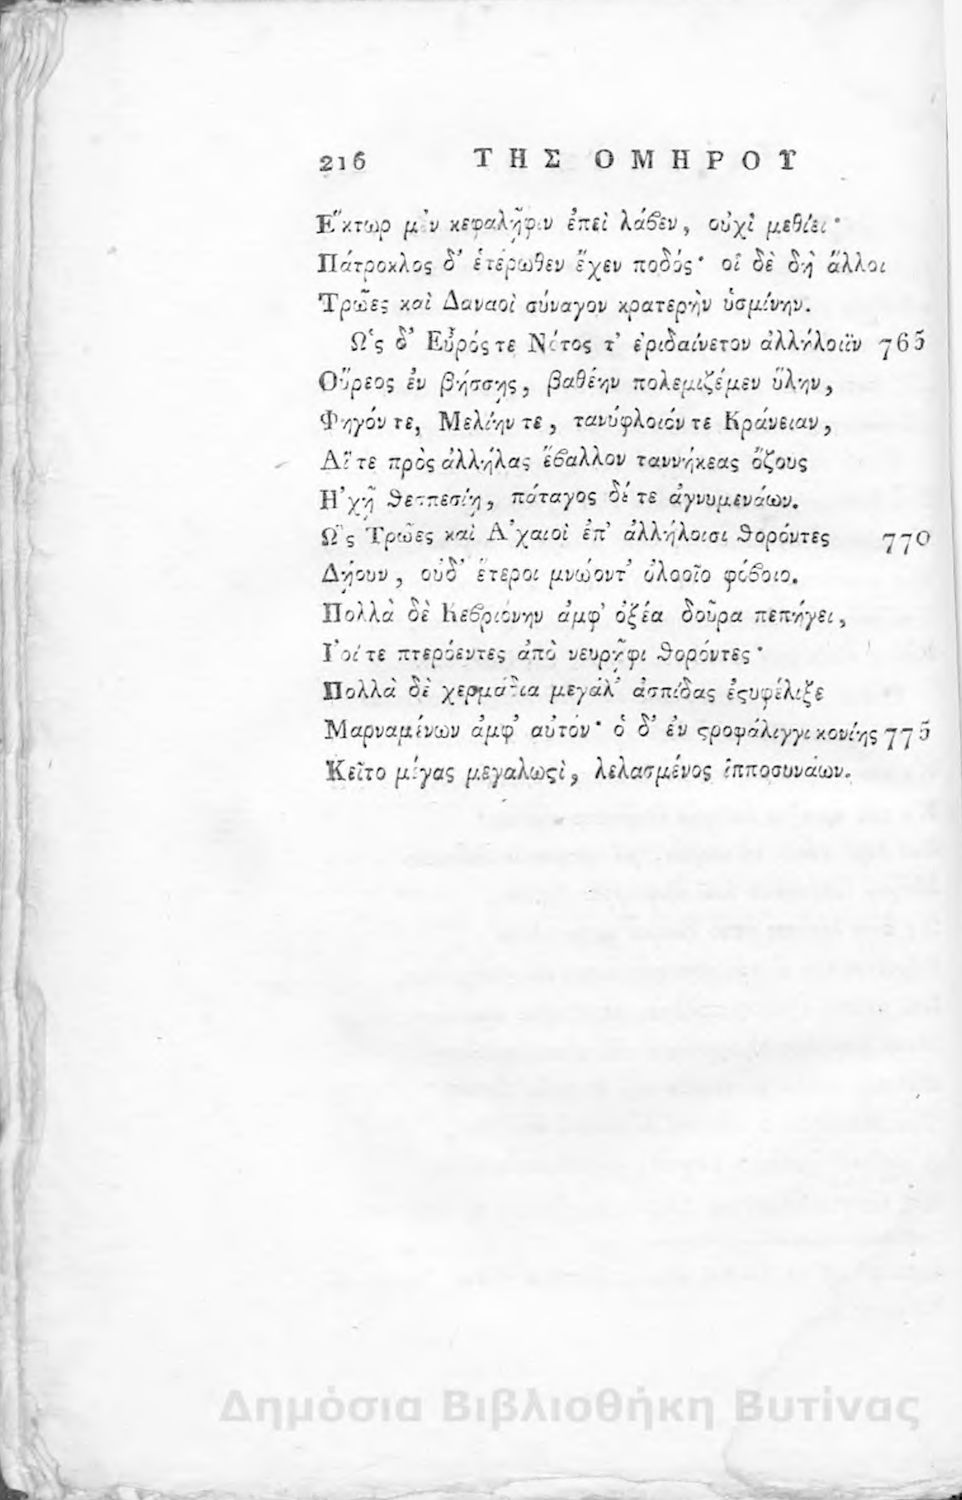 216 ΤΗΣ ΟΜΗΡΟΥ
Ἕκτωρ μὲν κεφαλῆφιν ἐπεὶ λάβεν, οὐχὶ μεθίει·
Πάτροκλος δ' ἑτέρωθεν ἔχεν ποδός· οἱ δὲ δὴ ἄλλοι
Τρῶες καὶ Δαναοὶ σύναγον κρατερὴν ὑσμίνην.
Ὡς δ' Εὖρός τε Νότος τ' ἐριδαίνετον ἀλλήλοιϊν 765
Οὔρεος ἐν βήσσῃς, βαθέην πολεμιζέμεν ὕλην,
Φηγόν τε, Μελίην τε, τανύφλοιόν τε Κράνειαν,
Αἵ τε πρὸς ἀλλήλας ἔβαλλον ταννήκεας ὄζους
Ἠχῇ θεσπεσίῃ, πάταγος δέ τε ἀγνυμενάων.
Ὣς Τρῶες καὶ Ἀχαιοὶ ἐπ' ἀλλήλοισι θορόντες 770
Δῄουν, οὐδ' ἕτεροι μνώοντ' ὀλοοῖο φόβοιο.
Πολλὰ δὲ Κεβριόνην ἀμφ' ὀξέα δοῦρα πεπήγει,
Ἰοί τε πτερόεντες ἀπὸ νευρῆφι θορόντες·
Πολλὰ δὲ χερμάδια μεγάλ' ἀσπίδας ἐϛυφέλιξε
Μαρναμένων ἀμφ' αὐτόν· ὁ δ' ἐν ϛροφάλιγγι κονίης 775
Κεῖτο μέγας μεγαλωϛὶ, λελασμένος ἱπποσυνάων.
Δημόσια Βιβλιοθήκη Βυτίνας